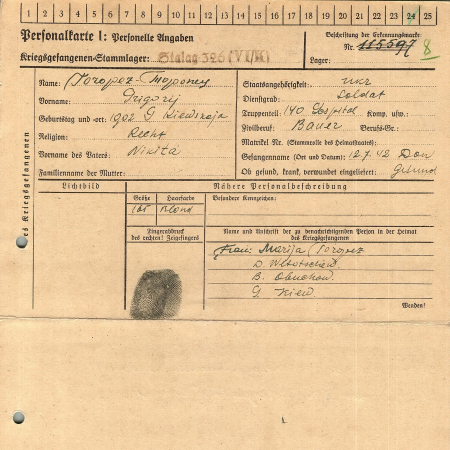 1 2 3 4 5 6 7 8 9 10 11 12 13 14 15 16 17 18 19 20 21 22 23 24 25
Personalkarte I: Personelle Angaben
Beschriftung der Erkennungsmarke
Nr. 115597 8
Kriegsgefangenen-Stammlager: Stalag 326 (VI/K)
Lager:
des Kriegsgefangenen
Name: Toropez -
Vorname: Grigorij
Geburtstag und -ort: 1902 G. Kiewskaja
Religion: Recht
Vorname des Vaters: Nikita
Familienname der Mutter:
Staatsangehörigkeit: ukr
Dienstgrad: Soldat
Truppenteil: 140 Hospital Komp. usw.:
Zivilberuf: Bauer Berufs-Gr.:
Matrikel Nr. (Stammrolle des Heimatstaates):
Gefangennahme (Ort und Datum): 12.7.42 Don
Ob gesund, krank, verwundet eingeliefert: gesund
Lichtbild
Nähere Personalbeschreibung
Größe Haarfarbe Besondere Kennzeichen:
Blond
Fingerabdruck
des rechten! Zeigefingers
Name und Anschrift der zu benachrichtigenden Person in der Heimat
des Kriegsgefangenen
Frau: Marija Toropez
D.
B. Obuchow.
G. Kiew.
Wenden!